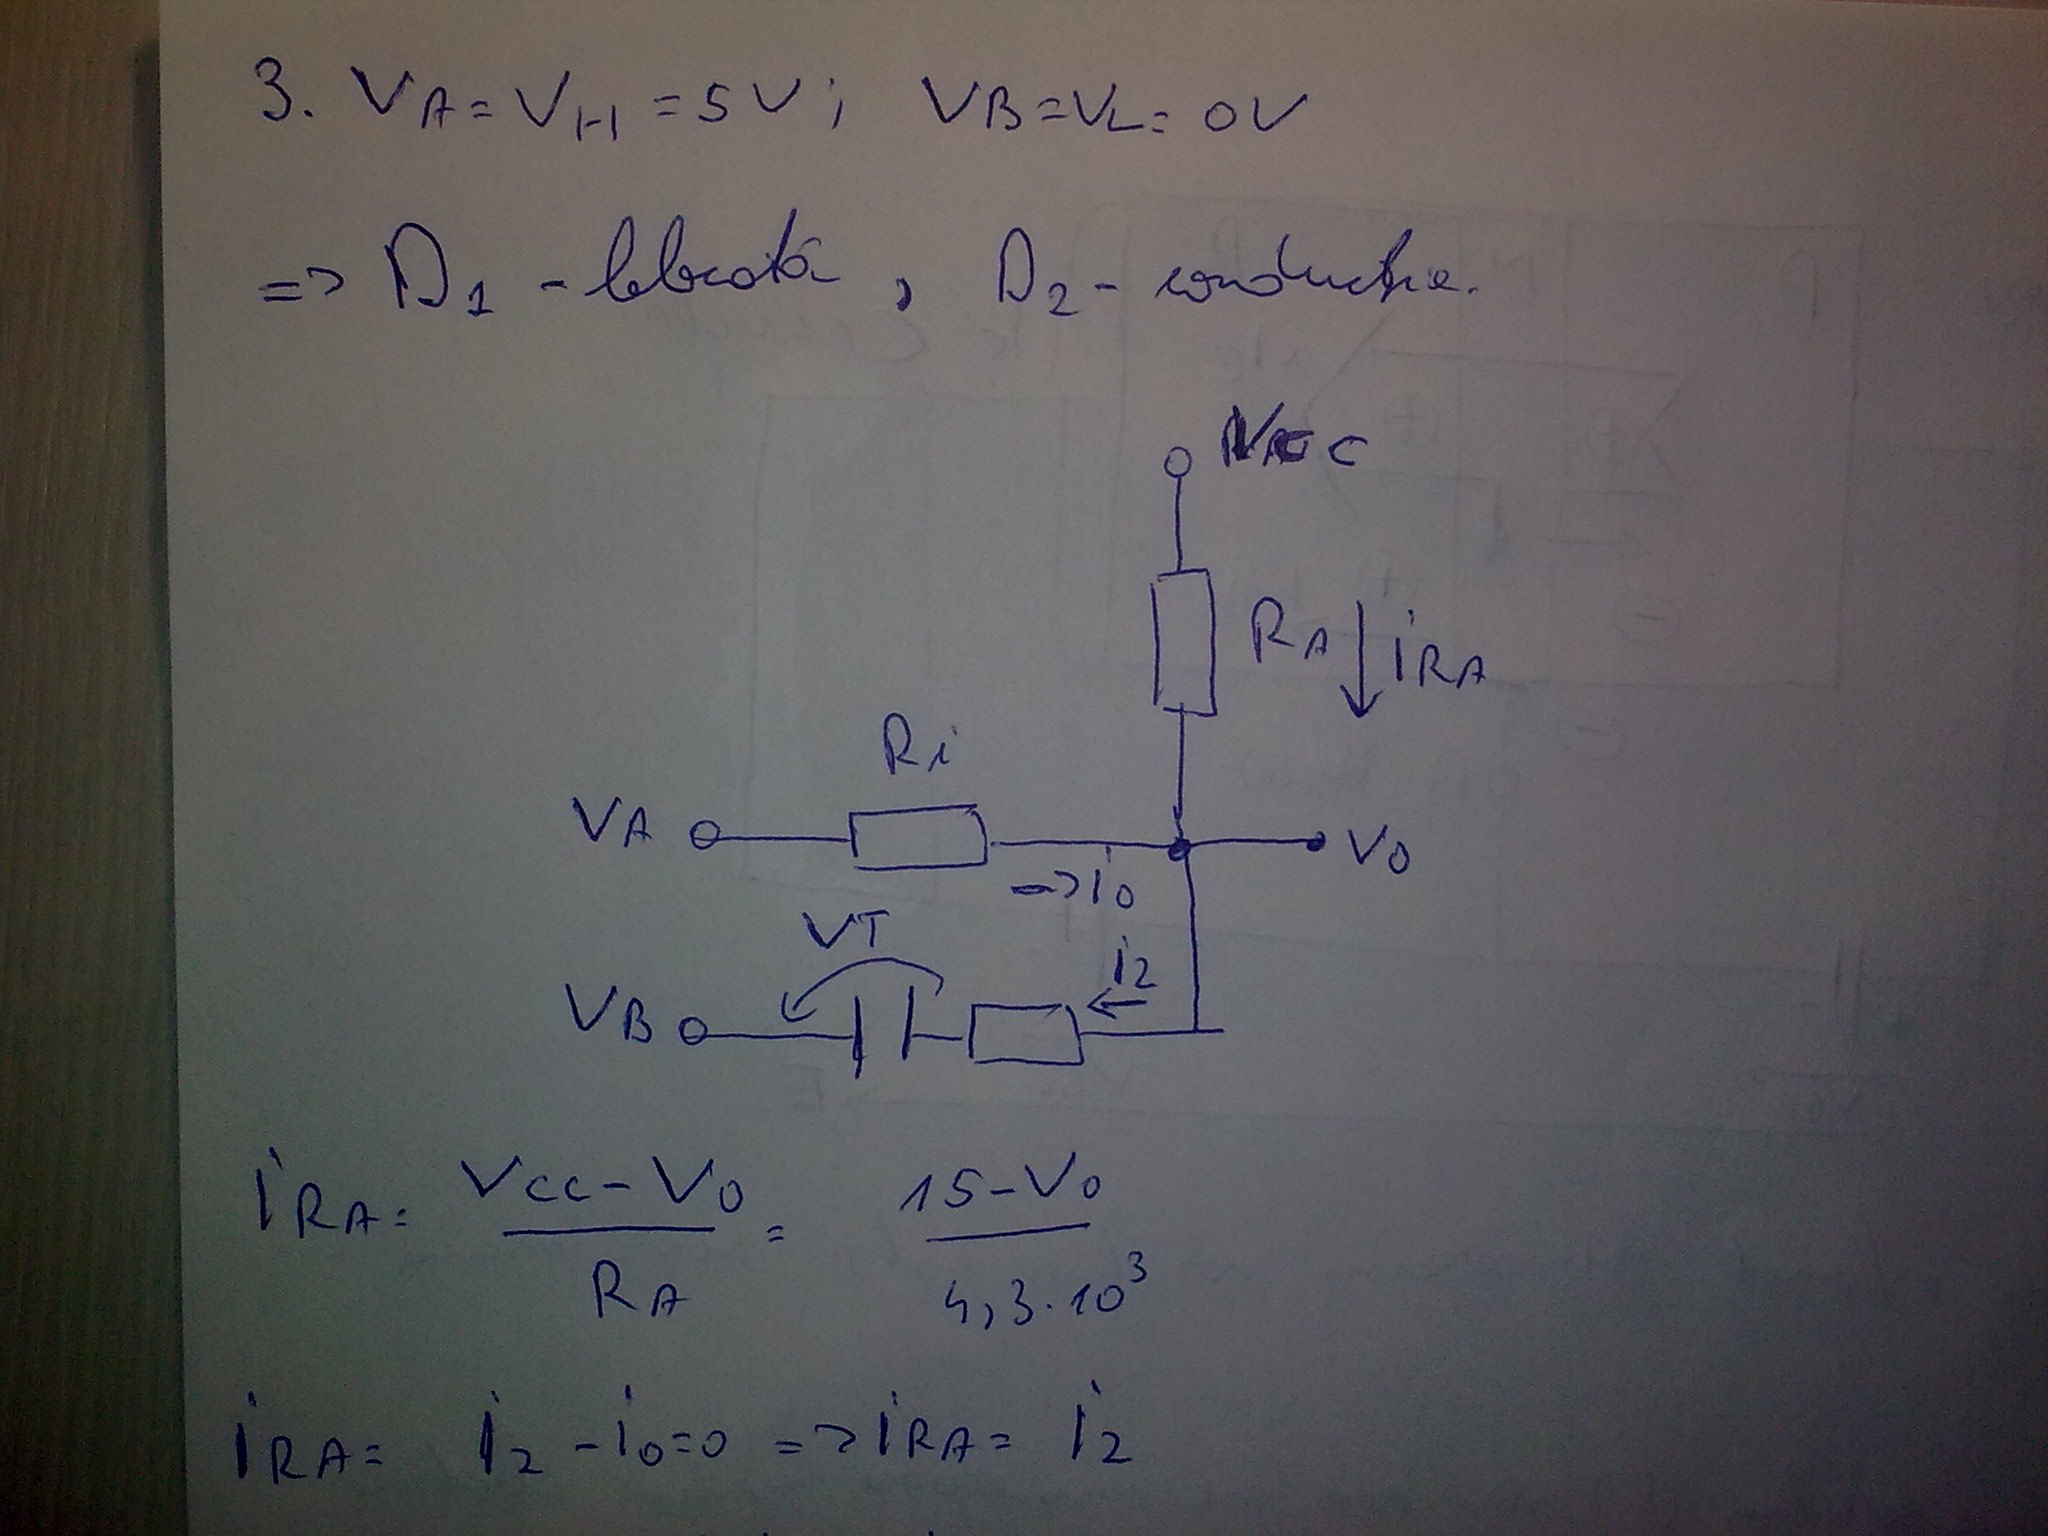 3. VA = VH = 5V ; VB = VL = 0V
=> D1 - blocată , D2 - conducție.
RA
iRA
Ri
VA
V0
=> i0
VT
i2
VB
iRA = (VCC - V0) / RA = (15 - V0) / (4,3 · 10³)
iRA = i2 - i0 = 0 => iRA = i2